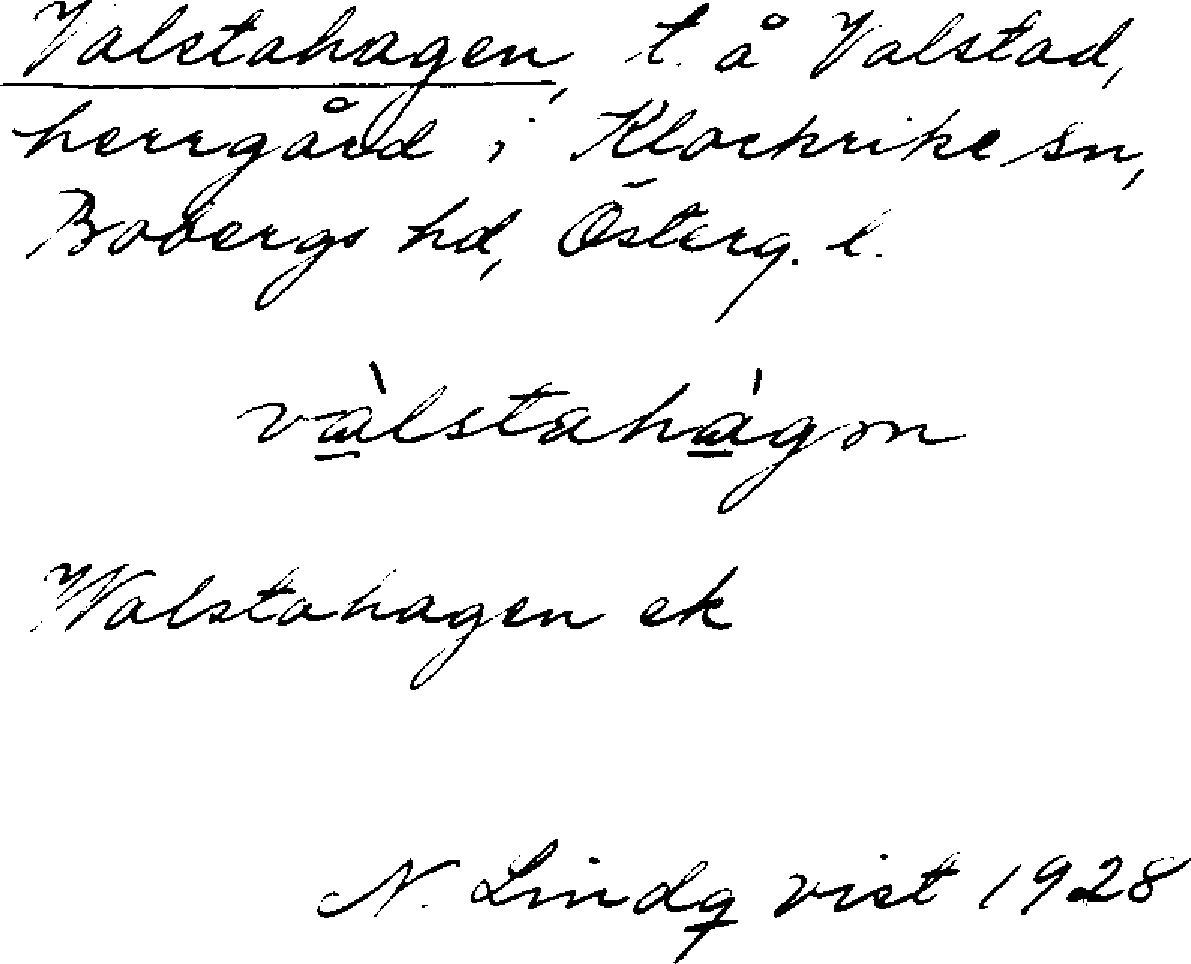 Valstahagen, t. å Valstad,
herrgård i Klockrike sn,
Bobergs hd, Österg. l.
vàlstahàgən
Walstahagen ek
N. Lindqvist 1928